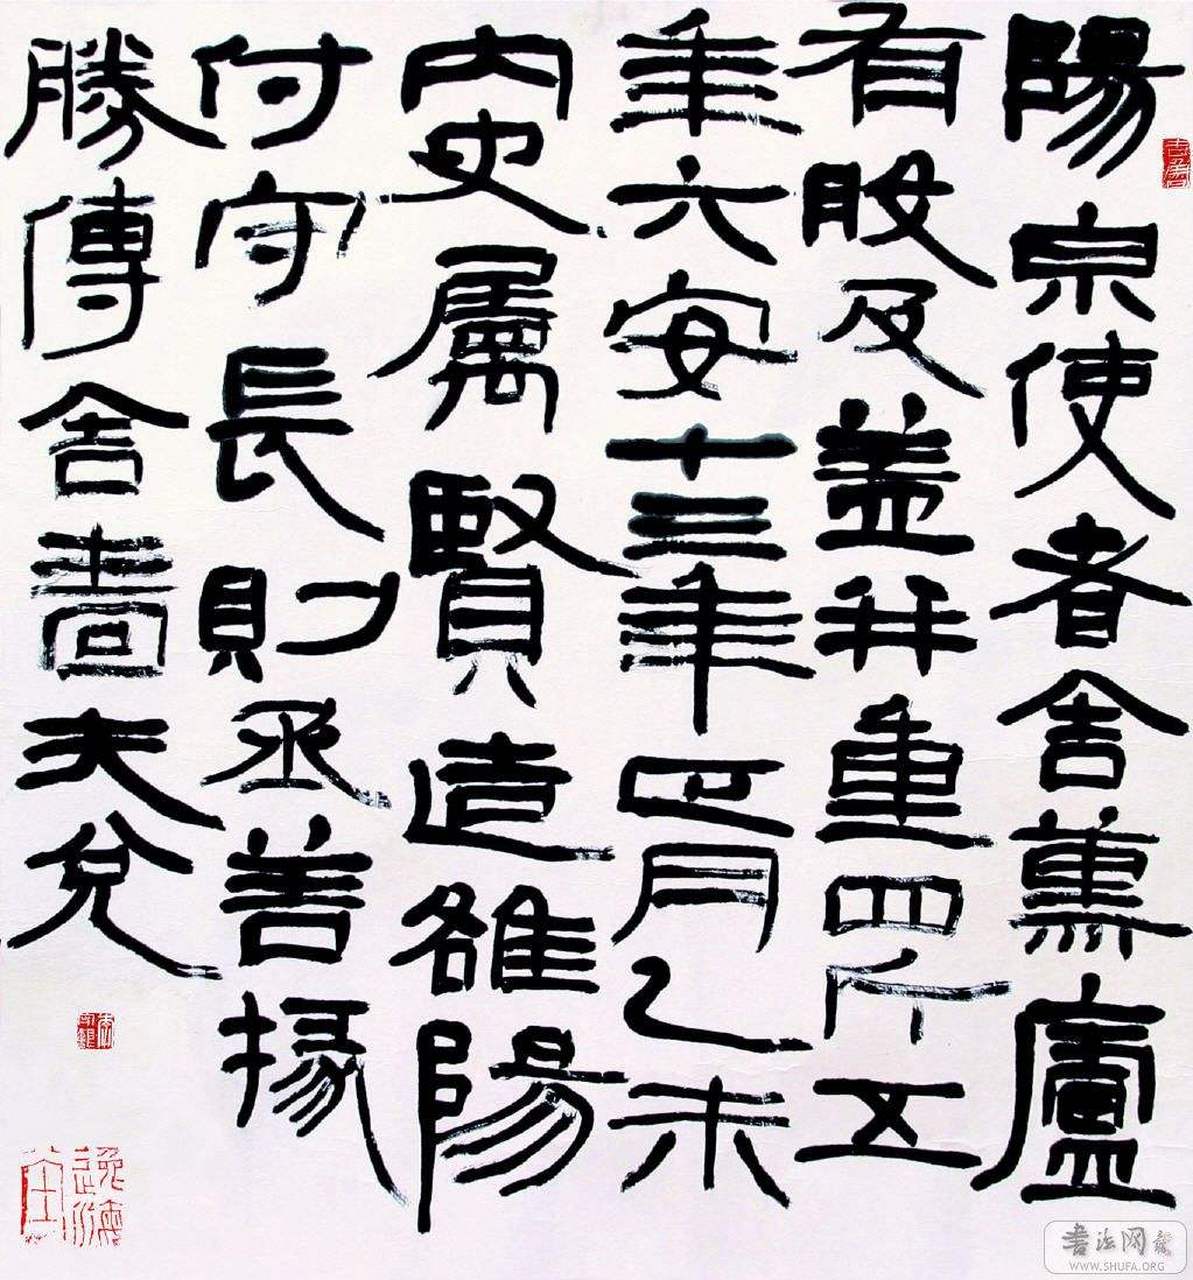 陽泉使者舍薰廬
有般及蓋并重四斤五
年六安十三年正月乙未
內史屬賢造雒陽
付守長則丞善掾
勝傳舍嗇夫兌
書法网
WWW.SHUFA.ORG